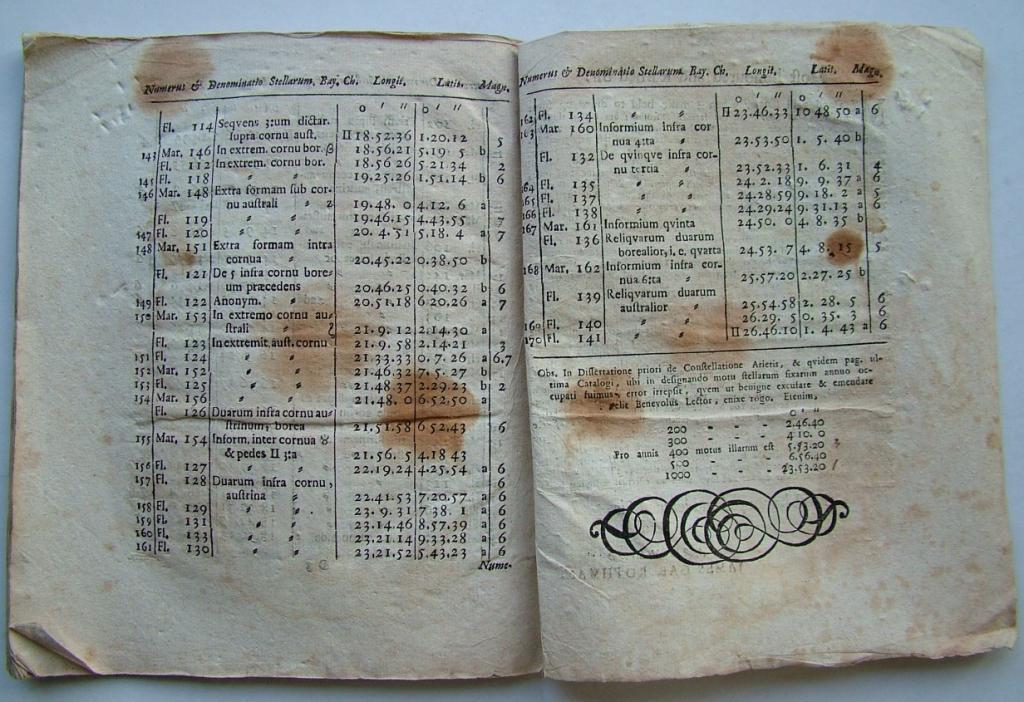 Numerus & Denominatio Stellarum. Bay. Ch. Longit. Latit. Magn.
o ′ ″ o ′ ″
Fl. 114 Seqvens 3:um dictar.
supra cornu aust. II 18.52.36 1.20.12 5
143 Mar. 146 In extrem. cornu bor. β 18.56.21 5.19. 5 b
Fl. 112 In extrem. cornu bor. 18.56 26 5.21 34 2
145 Fl. 118 〃 〃 19.25.26 1.51.14 b 6
146 Mar. 148 Extra formam sub cor-
nu australi 〃 19.48. 0 4.12. 6 a
Fl. 119 〃 〃 19.46.15 4.43.55 7
147 Fl. 120 〃 〃 20. 4.51 5.18. 4 a 7
148 Mar. 151 Extra formam intra
cornua 〃 20.45.22 0.38.50 b
Fl. 121 De 5 infra cornu bore-
um præcedens 20.46.25 0.40.32 b 6
149 Fl. 122 Anonym. 〃 20.51.18 6 20.26 a 7
150 Mar. 153 In extremo cornu au-
strali 〃 ζ 21. 9. 12 2.14.30 a
Fl. 123 In extremit. aust. cornu 21. 9. 58 2.14.21 3
151 Fl. 124 〃 〃 21.33.33 0. 7. 26 a 6.7
152 Mar. 152 〃 〃 21.46.32 7. 5. 27 b
153 Fl. 125 〃 〃 21.48.37 2.29.23 b 2
154 Mar. 156 〃 〃 21.48. 0 6.52.50 a
Fl. 126 Duarum infra cornu au-
strinum, borea 21.51.58 6 52.43 6
155 Mar. 154 Inform. inter cornua ♉
& pedes II 3:ta 21.56. 5 4.18 43
156 Fl. 127 〃 〃 22.19.24 4.25.54 a 6
157 Fl. 128 Duarum infra cornu,
austrina 〃 22.41.53 7.20.57 a 6
158 Fl. 129 〃 〃 23. 9.31 7 38. 1 a 6
159 Fl. 131 〃 〃 23.14.46 8.57.39 a 6
160 Fl. 133 〃 〃 23.21.14 9.33.28 a 6
161 Fl. 130 〃 〃 23.21.52 5.43.23 a 6
Nume-
Numerus & Denominatio Stellarum. Bay. Ch. Longit. Latit. Magn.
o ′ ″ o ′ ″
162 Fl. 134 〃 〃 II 23.46.33 10 48 50 a 6
163 Mar. 160 Informium infra cor-
nua 4:ta 〃 23.53.50 1. 5. 40 b
Fl. 132 De qvinqve infra cor-
nu tertia 〃 23.52.33 1. 6. 31 4
164 Fl. 135 〃 〃 24. 2. 18 9. 9. 37 a 6
165 Fl. 137 〃 〃 24.28.59 9. 18. 2 a 5
166 Fl. 138 〃 〃 24.29.24 9. 31.13 a 6
167 Mar. 161 Informium qvinta 24.50. 0 4. 8. 35 b
Fl. 136 Reliqvarum duarum
borealior, i. e. qvarta 24.53. 7 4. 8. 15 5
168 Mar. 162 Informium infra cor-
nua 6:ta 〃 25.57.20 2.27. 25 b
Fl. 139 Reliqvarum duarum
australior 〃 25.54.58 2. 28. 5 6
169 Fl. 140 〃 〃 26.29. 5 0. 35. 3 6
170 Fl. 141 〃 〃 II 26.46.10 1. 4. 43 a 6
Obs. In Dissertatione priori de Constellatione Arietis, & qvidem pag. ul-
tima Catalogi, ubi in designando motu stellarum fixarum annuo oc-
cupati fuimus, error irrepsit, qvem ut benigne excusare & emendare
velit Benevolus Lector, enixe rogo. Etenim,
o ′ ″
200 - - - 2.46.40
300 - - - 4 10. 0
Pro annis 400 motus illarum est 5.33.20
500 - - - 6.56.40
1000 - - - 13.53.20